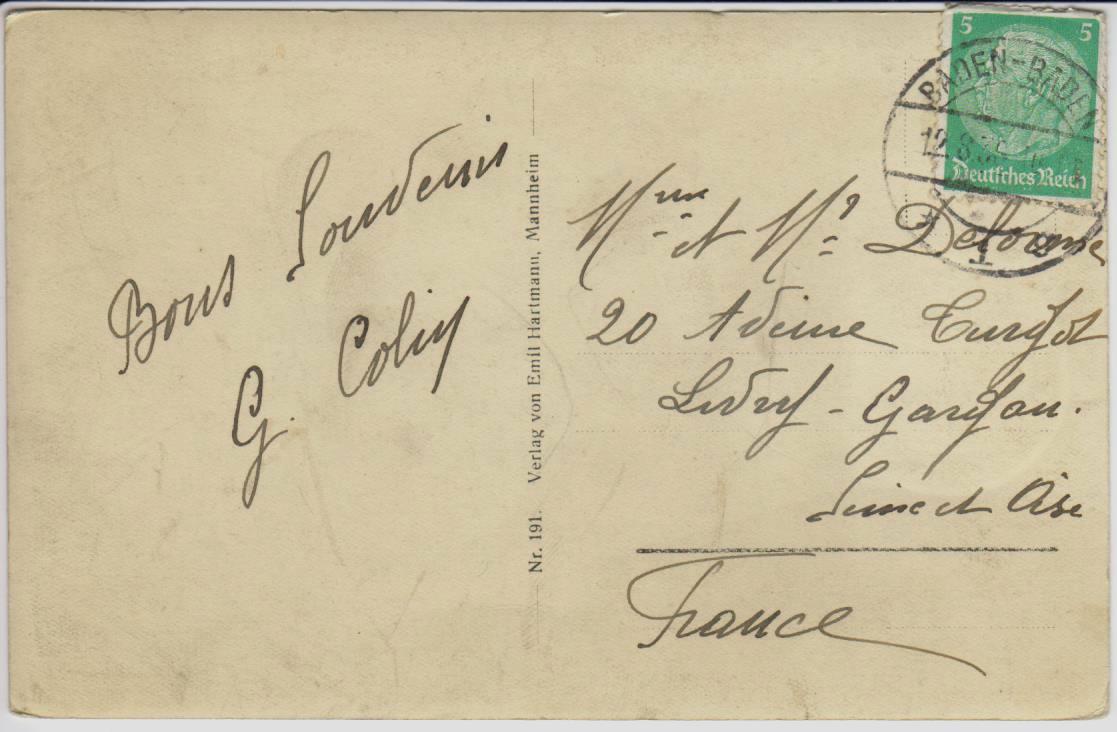 Bons Souvenirs
G. Colin
Nr. 191. Verlag von Emil Hartmann, Mannheim
5 5
Deutsches Reich
BADEN-BADEN
12.8.
Mme et Mr
20 Avenue Turgot
Livry-Gargan.
Seine et Oise
France